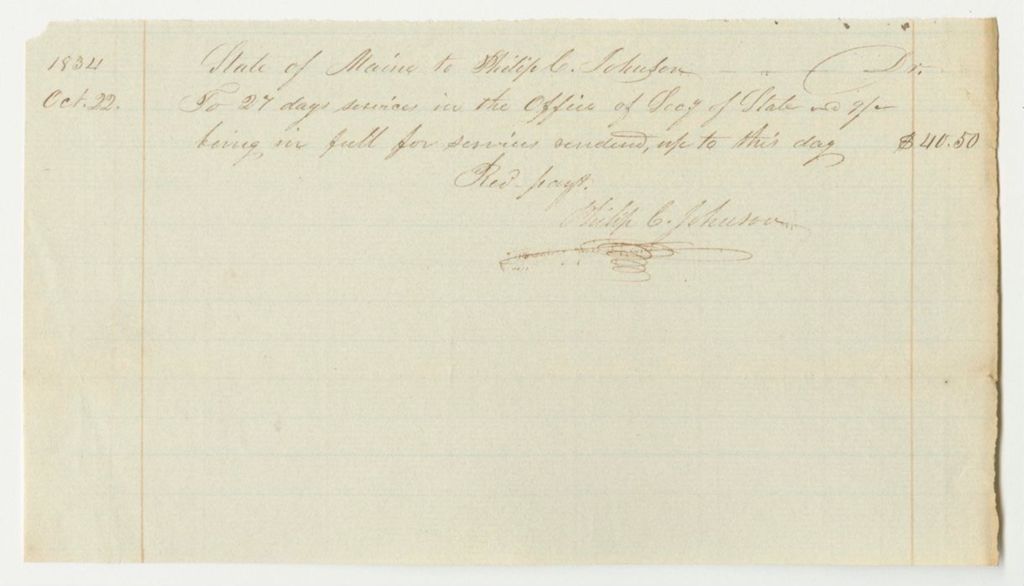 1834 State of Maine to Philip C. Johnson - - " Dr.
Oct. 22. To 27 days services in the Office of Secy of State
being in full for services rendered, up to this day $40.50
Recd payt.
Philip C. Johnson